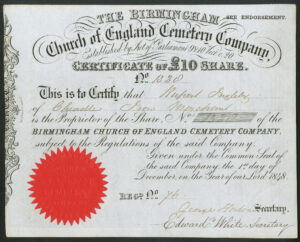 THE BIRMINGHAM
SEE ENDORSEMENT.
Church of England Cemetery Company.
Established by Act of Parliament
CERTIFICATE OF £10 SHARE.
No.
This is to Certify that
of
is the Proprietor of the Share, No. of the
BIRMINGHAM CHURCH OF ENGLAND CEMETERY COMPANY,
subject to the Regulations of the said Company.
Given under the Common Seal of
the said Company, the 1st day of
December, in the Year of our Lord 1848
REGD. No. 76
George Secretary.
Edward White Secretary